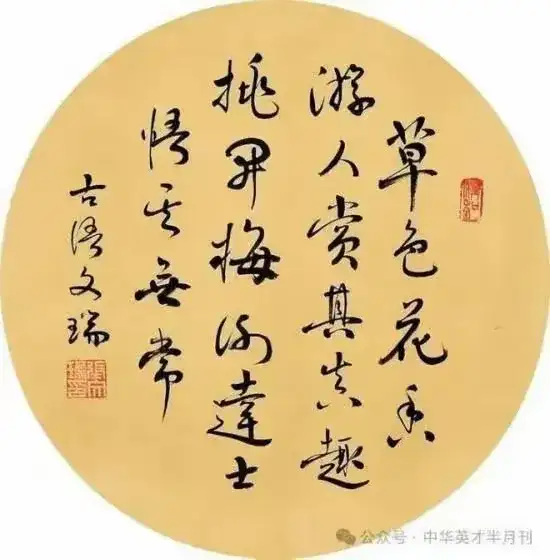 草色花香
游人赏其真趣
桃开梅谢达士
悟其無常
古語文瑞
公众号·中华英才半月刊